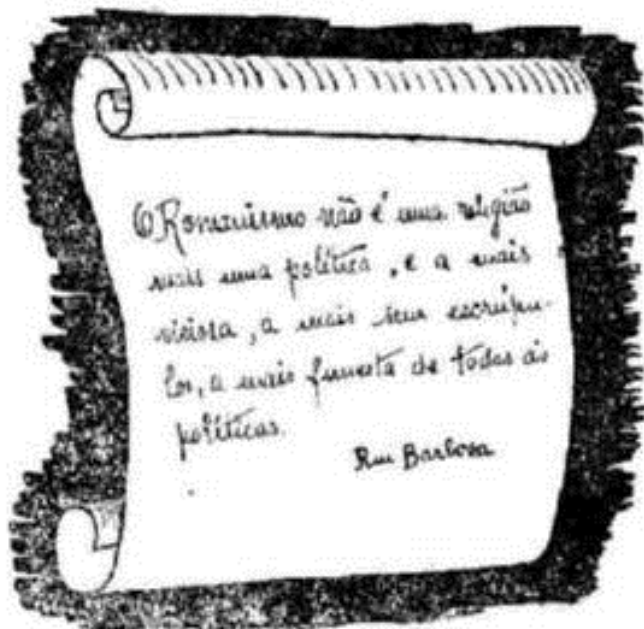 O Romanismo não é uma religião
mais uma política, e a mais
viciosa, a mais sem escrúpu-
los, a mais funesta de todas as
políticas.
Rui Barbosa